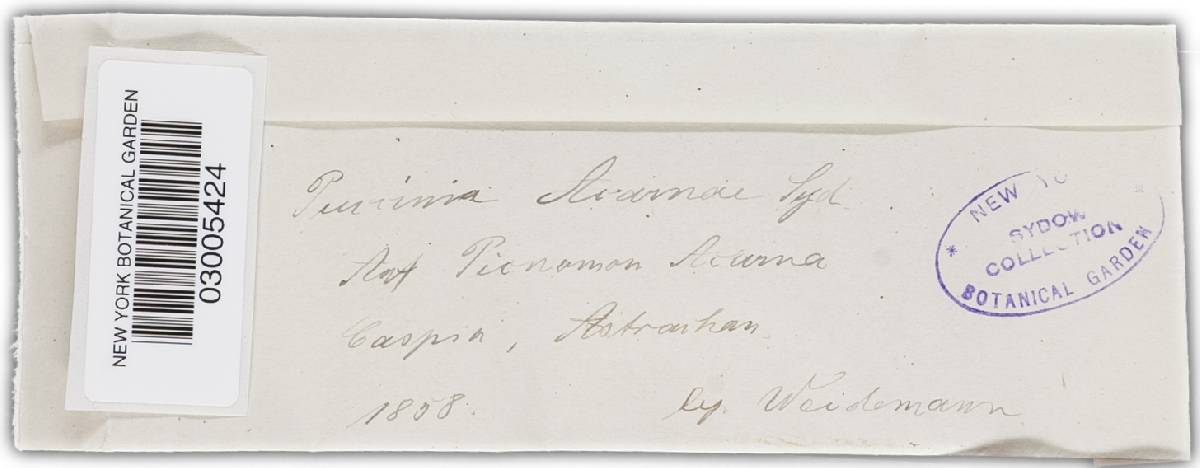 NEW YORK BOTANICAL GARDEN
03005424
Puccinia Acarnae Syd.
Auf Picnomon Acarna
Caspia, Astrachan
1858. lg. Weidemann
NEW YO
SYDOW
COLLECTION
BOTANICAL GARDEN